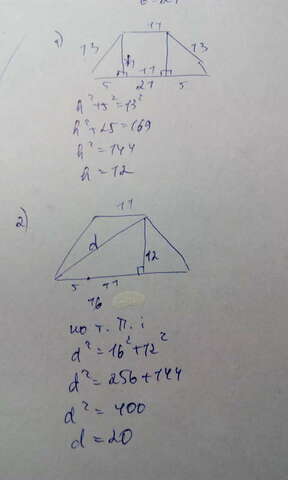 1)
11
13 h 13
11
5 21 5
h²+5²=13²
h²+25=169
h²=144
h=12
2)
11
d 12
5 11
16
по т. П.:
d²=16²+12²
d²=256+144
d²=400
d=20